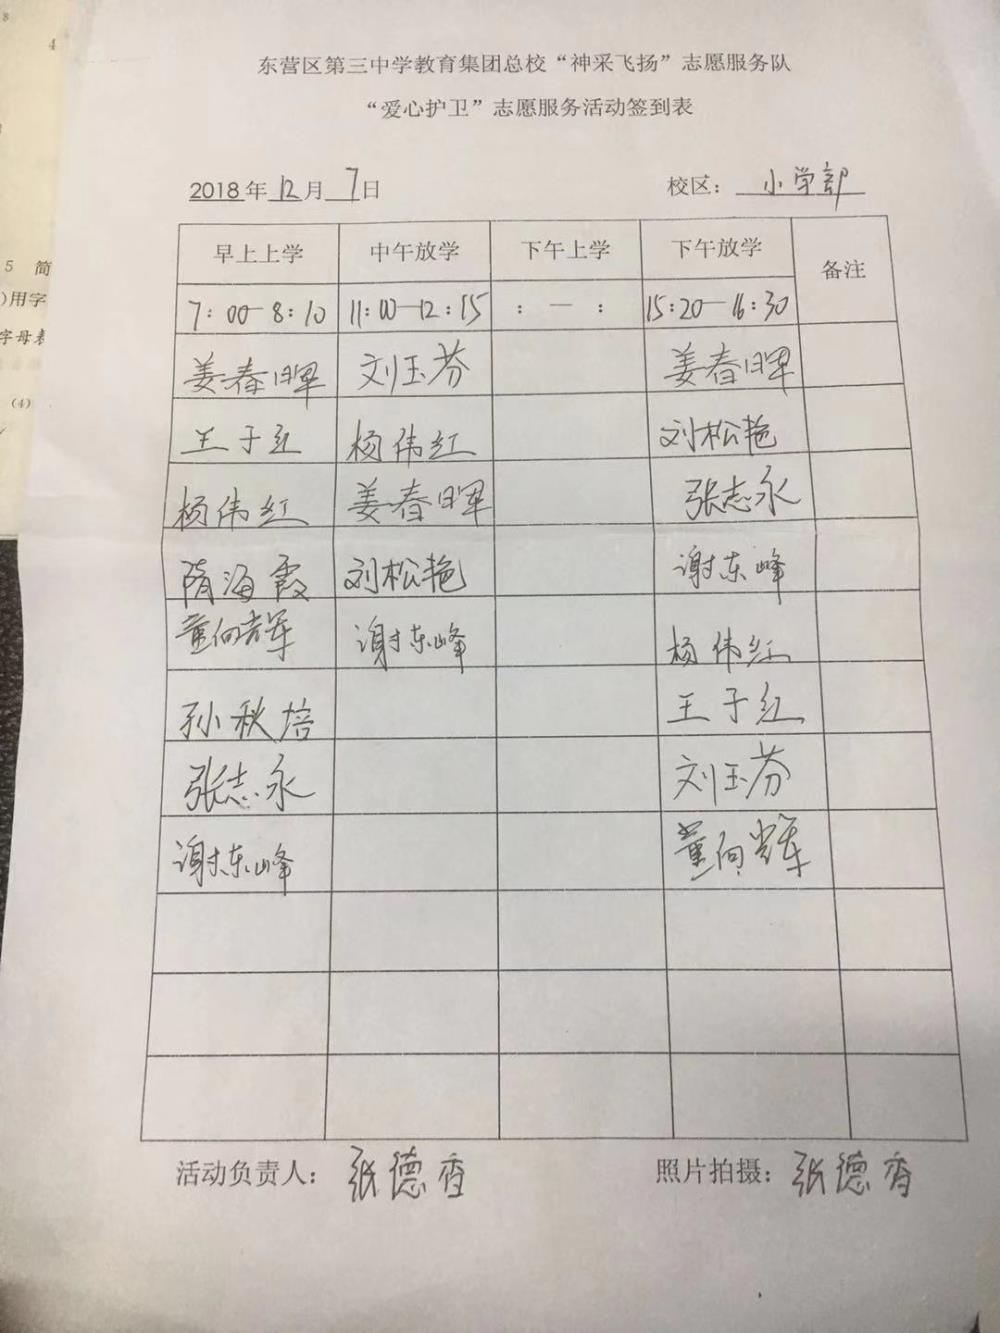 东营区第三中学教育集团总校“神采飞扬”志愿服务队
“爱心护卫”志愿服务活动签到表
2018年12月7日 校区：小学部
早上上学 中午放学 下午上学 下午放学 备注
7:00-8:10 11:00-12:15 : — : 15:20-16:30
姜春晖 刘玉芬 姜春晖
王子红 杨伟红 刘松艳
杨伟红 姜春晖 张志永
隋海霞 刘松艳 谢东峰
董向辉 谢东峰 杨伟红
孙秋培 王子红
张志永 刘玉芬
谢东峰 董向辉
活动负责人：张德香 照片拍摄：张德香
8
4
5 简
)用字
字母表
(4)